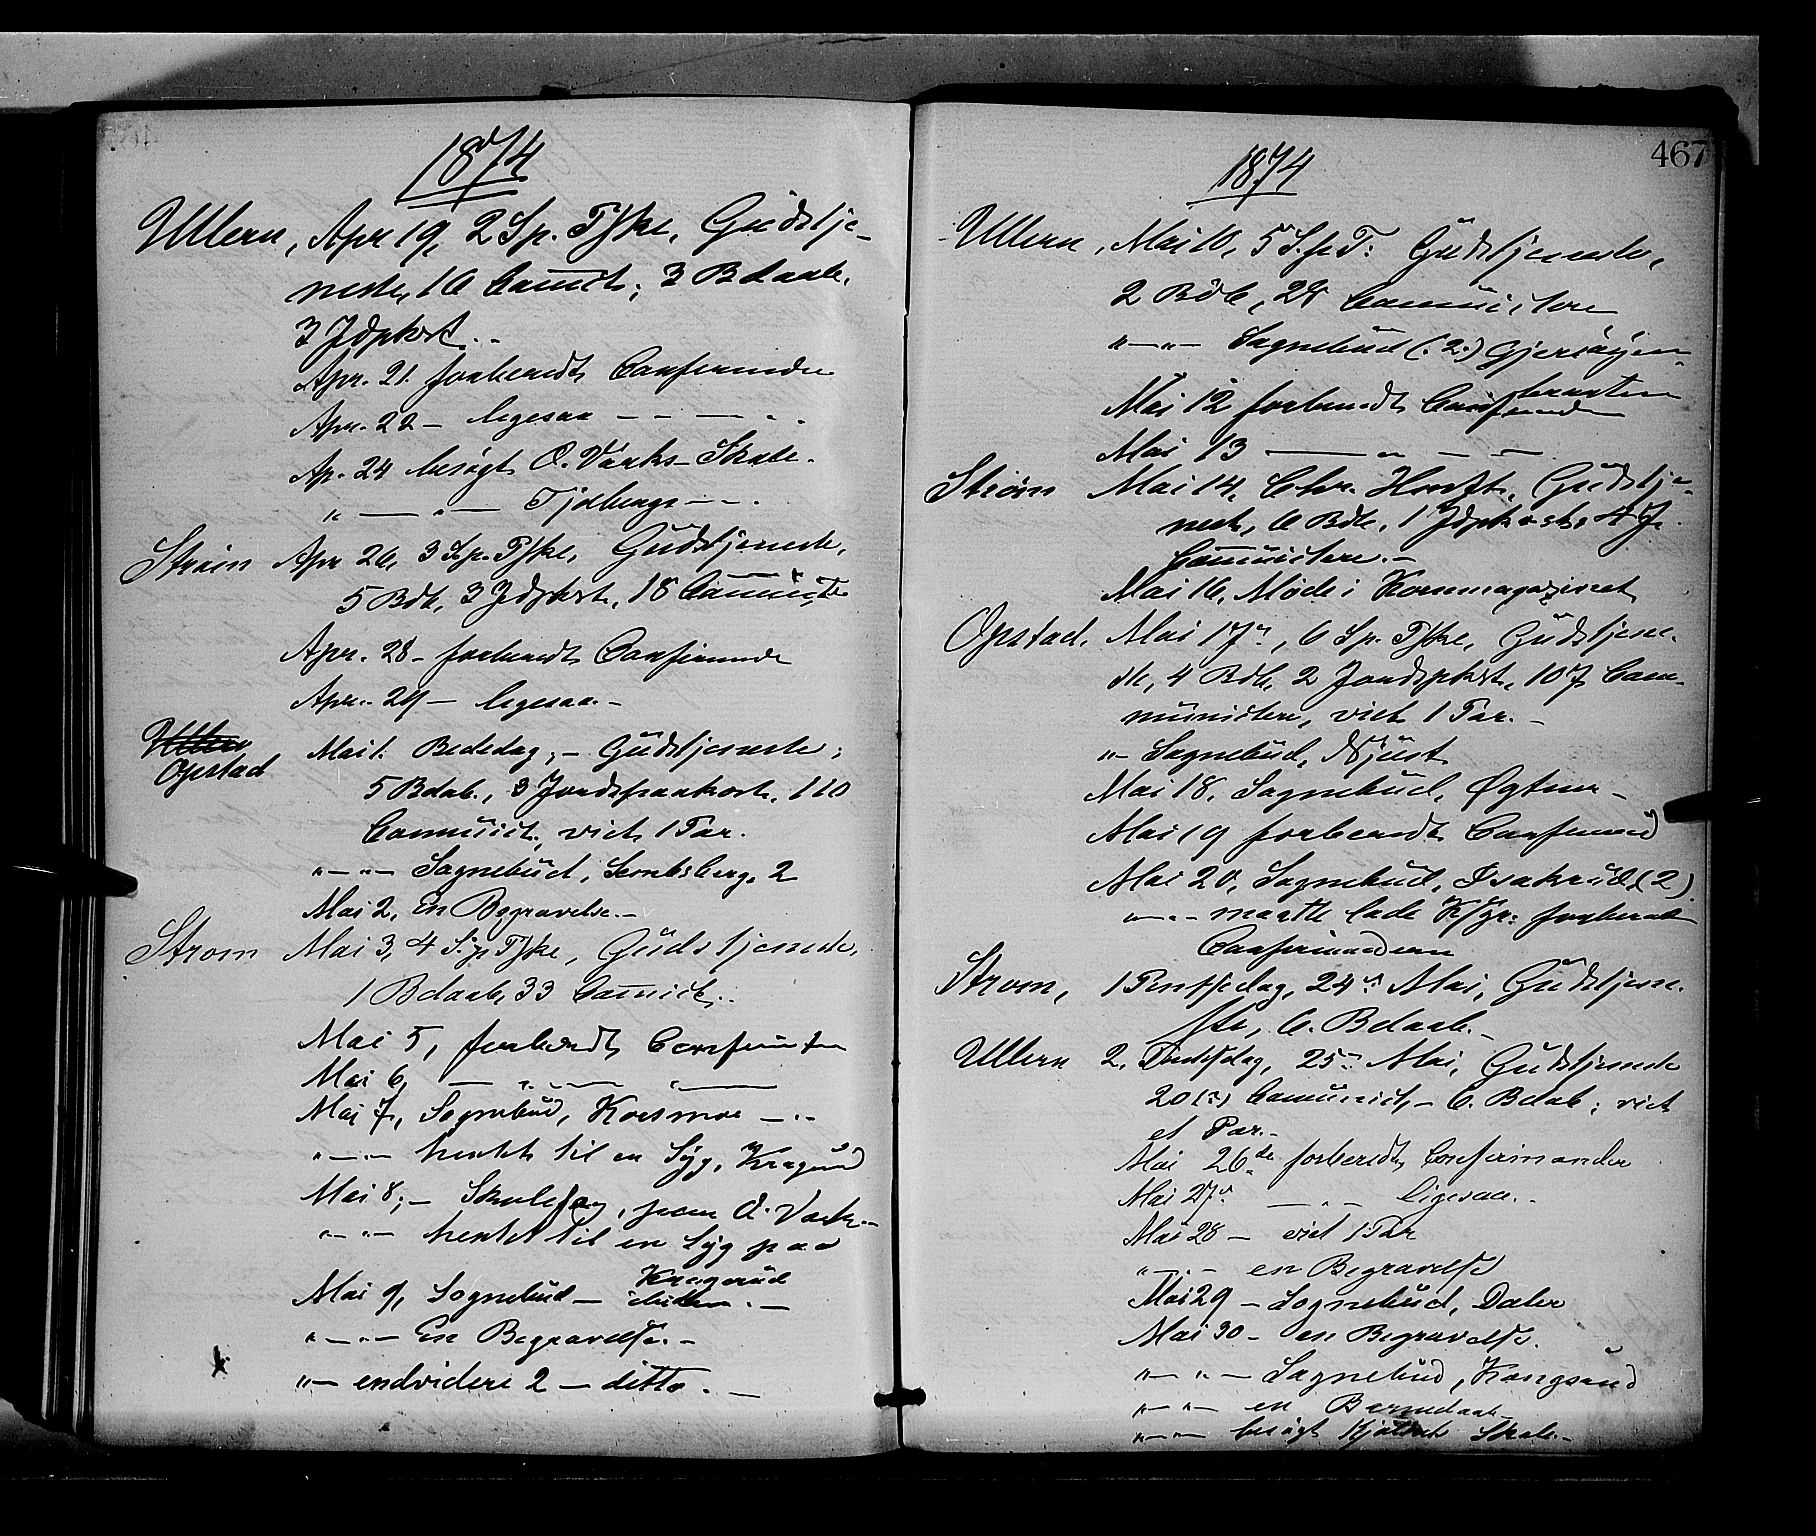 1874
Ullern, Apr 19, 2 S. p. Pske, Gudstje-
neste, 16 Commct; 3 Bdaab.
3 Jdpkst..
Apr. 21. forberedt Confirmder
Apr. 22 – ligesaa – – — „ .
Ap. 24 besøgt O. Værks-Skole.
„ — „ — Tjdbergs — – .
Strøm Apr 26, 3 S. p. Pske, Gudstjeneste,
5 Bdb, 3 Jdpkst, 18 Communte
Apr. 28 – forberedt Confirmde
Apr. 29 – ligesaa. –
Ullern
Opstad Mai 1. Bededag; – Gudstjeneste;
5 Bdab., 3 Jordspaakast, 110
Communict., viet 1 Par.
„ – „ – Sognebud, 2
Mai 2, En Begravelse. –
Strøm Mai 3, 4 S. p. Pske, Gudstjeneste,
1 Bdaab, 33 Comnict..
Mai 5, forberedt
Mai 6, — „ — —
Mai 7, Sognebud, Korsmoe – „ –
„ – „ – hentet til en Syg, Kragerud
Mai 8; – Skole, O. Værk. –
„ – „ – hentet til en Syg paa
Kragerud
Mai 9, Sognebud – . –
„ – „ – En Begravelse. –
„ – endvidere 2 – ditto. –
467
1874
Ullern, Mai 10, 5 S. p. P: Gudstjeneste,
2 Bdb, 28 Communictere
„ – „ – Sognebud (: 2:)
Mai 12 forberedt
Mai 13 — „ – —
Strøm Mai 14, Chr. Hmft, Gudstje-
neste, 6 Bdb, 1 Jdpkast, 47
Communictere. –
Mai 16, Møde i Kornmagazinet
Opstad. Mai 17de, 6 S. p. Pske, Gudstjene-
ste, 4 Bdb, 2 Jordspkst, 107 Com-
munictere, viet 1 Par. –
„ – Sognebud,
Mai 18, Sognebud, –
Mai 19 forberedt Confirmand
Mai 20, Sognebud, Isakrud (2)
„ – „ – maatte lade forberede
Confirmanderne
Strøm, 1 Pintsedag, 24de Mai, Gudstjene-
ste, 6. Bdaab. –
Ullern 2. Pintsdag, 25de Mai, Gudstjeneste
20 Comunict, – 6. Bdab; viet
et Par. –
Mai 26de forberedt Confirmander
Mai 27de — „ – ligesaa. –
Mai 28 – viet 1 Par
„ – „ – en Begravelse
Mai 29 – Sognebud, Daler
Mai 30 – en Begravelse.
„ – „ – Sognebud, Kongsrud
„ – „ – en Barnedaab
„ – „ – besøgt Skole. –